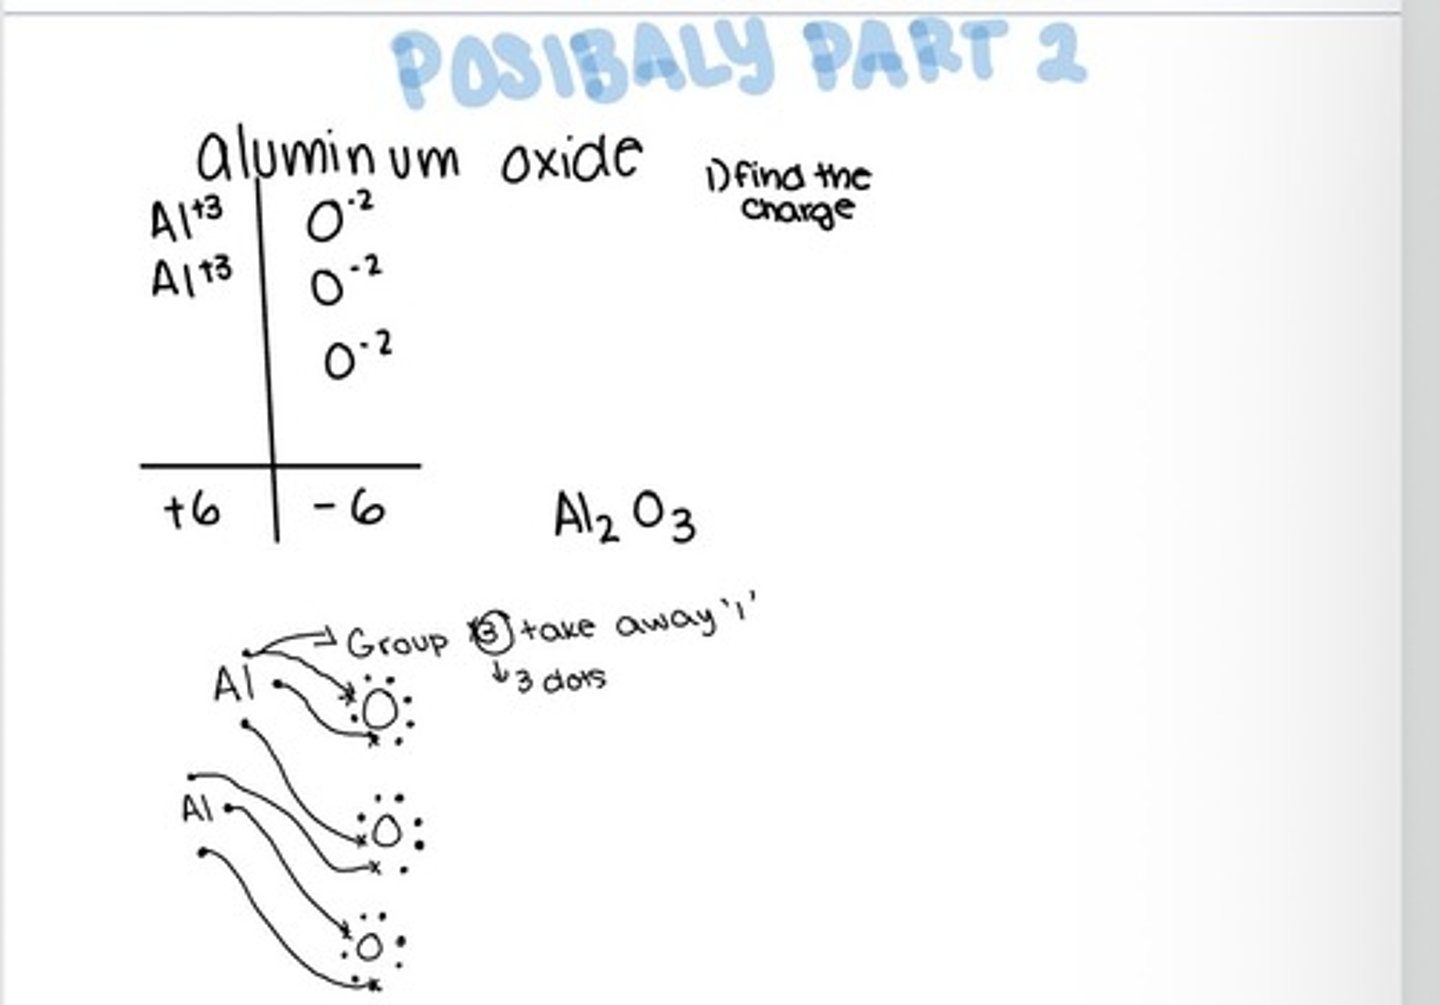 POSIBALY PART 2
aluminum oxide
1) find the
charge
Al+3 O-2
Al+3 O-2
O-2
+6 -6
Al2O3
Group 3 take away '1'
↓ 3 dots
Al
O
Al
O
O